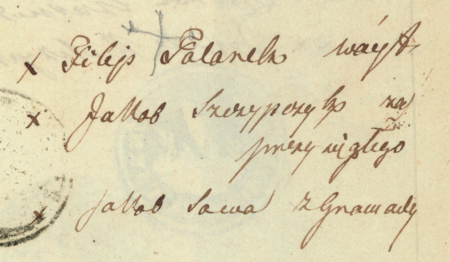 x Filip Palanek wáyt
x Jakob Szczypczyk za
przysięgłego
x Jakob Sowa z Gramady